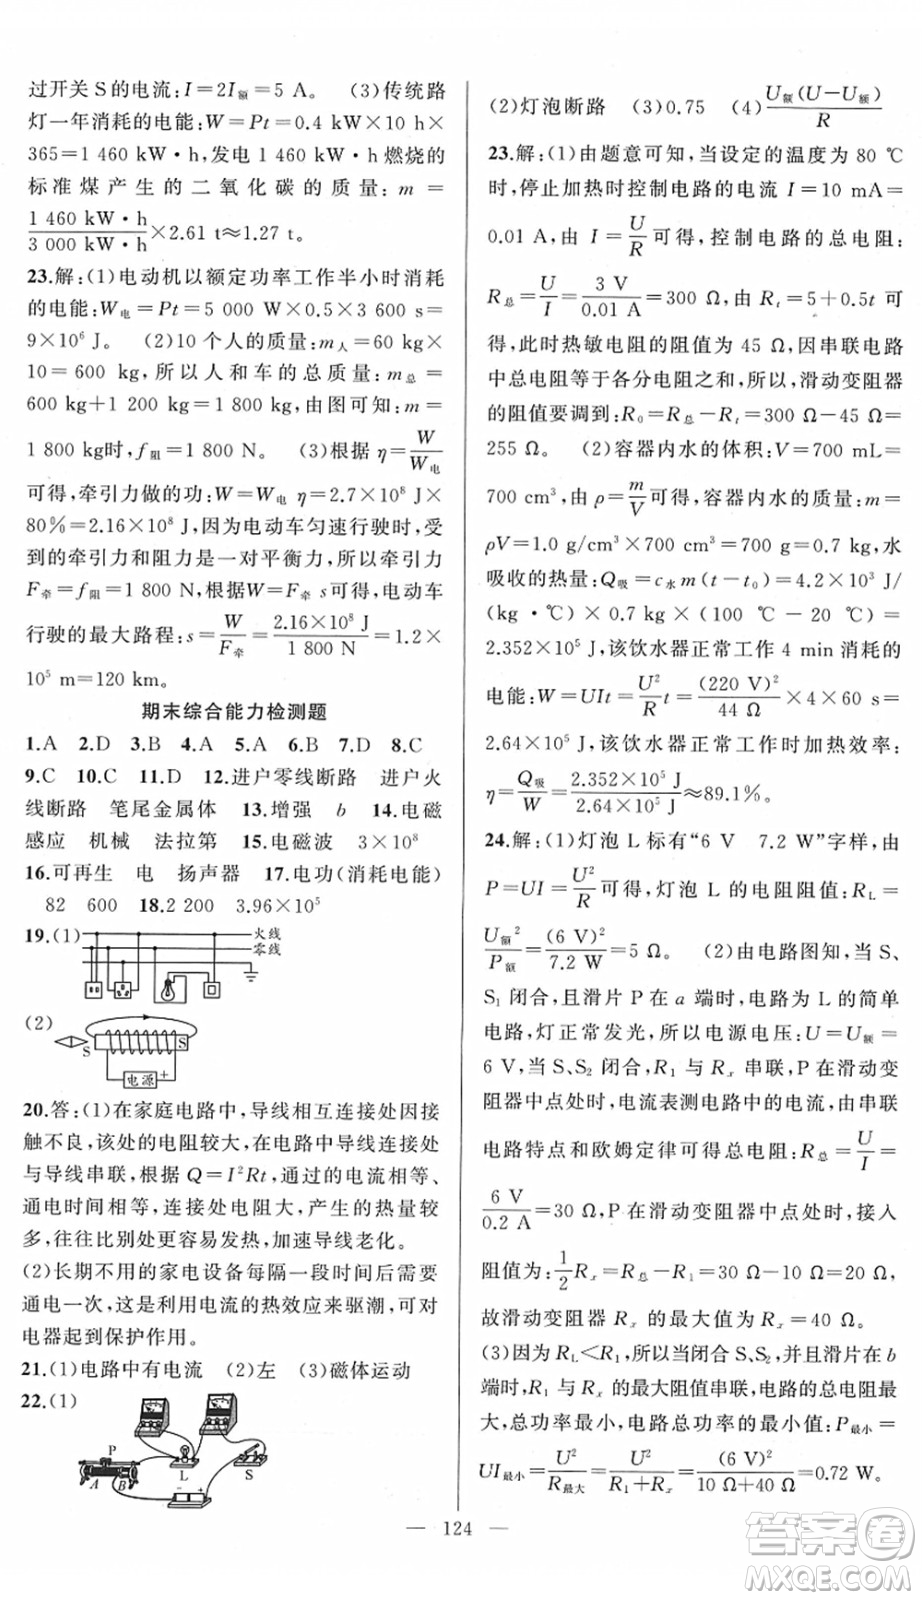 过开关 S 的电流:I=2I额=5 A。 (3)传统路
灯一年消耗的电能:W=Pt=0.4 kW×10 h×
365=1 460 kW·h,发电 1 460 kW·h 燃烧的
标准煤产生的二氧化碳的质量:m=
1 460 kW·h/3 000 kW·h×2.61 t≈1.27 t。
23.解:(1)电动机以额定功率工作半小时消耗
的电能:W电=Pt=5 000 W×0.5×3 600 s=
9×10⁶ J。 (2)10 个人的质量:m人=60 kg×
10=600 kg,所以人和车的总质量:m总=
600 kg+1 200 kg=1 800 kg,由图可知:m=
1 800 kg时,f阻=1 800 N。 (3)根据 η=W/W电
可得,牵引力做的功:W=W电 η=2.7×10⁸ J×
80%=2.16×10⁸ J,因为电动车匀速行驶时,受
到的牵引力和阻力是一对平衡力,所以牵引力
F牵=f阻=1 800 N,根据W=F牵 s可得,电动车
行驶的最大路程:s=W/F牵=2.16×10⁸ J/1 800 N=1.2×
10⁵ m=120 km。
期末综合能力检测题
1.A 2.D 3.B 4.A 5.A 6.B 7.D 8.C
9.C 10.C 11.D 12.进户零线断路 进户火
线断路 笔尾金属体 13.增强 b 14.电磁
感应 机械 法拉第 15.电磁波 3×10⁸
16.可再生 电 扬声器 17.电功(消耗电能)
82 600 18.2 200 3.96×10⁵
19.(1) 火线
零线
(2)
S S
电源
20.答:(1)在家庭电路中,导线相互连接处因接
触不良,该处的电阻较大,在电路中导线连接处
与导线串联,根据 Q=I²Rt,通过的电流相等、
通电时间相等,连接处电阻大,产生的热量较
多,往往比别处更容易发热,加速导线老化。
(2)长期不用的家电设备每隔一段时间后需要
通电一次,这是利用电流的热效应来驱潮,可对
电器起到保护作用。
21.(1)电路中有电流 (2)左 (3)磁体运动
22.(1)
P
A B L S
- +
(2)灯泡断路 (3)0.75 (4)U额(U-U额)/R
23.解:(1)由题意可知,当设定的温度为 80 ℃
时,停止加热时控制电路的电流 I=10 mA=
0.01 A,由 I=U/R可得,控制电路的总电阻:
R总=U/I=3 V/0.01 A=300 Ω,由 Rt=5+0.5t 可
得,此时热敏电阻的阻值为 45 Ω,因串联电路
中总电阻等于各分电阻之和,所以,滑动变阻器
的阻值要调到:R₀=R总-Rt=300 Ω-45 Ω=
255 Ω。 (2)容器内水的体积:V=700 mL=
700 cm³,由 ρ=m/V可得,容器内水的质量:m=
ρV=1.0 g/cm³×700 cm³=700 g=0.7 kg,水
吸收的热量:Q吸=c水m(t-t₀)=4.2×10³ J/
(kg·℃)×0.7 kg×(100 ℃-20 ℃)=
2.352×10⁵ J,该饮水器正常工作 4 min 消耗的
电能:W=UIt=U²/R t=(220 V)²/44 Ω×4×60 s=
2.64×10⁵ J,该饮水器正常工作时加热效率:
η=Q吸/W=2.352×10⁵ J/2.64×10⁵ J≈89.1%。
24.解:(1)灯泡 L 标有“6 V 7.2 W”字样,由
P=UI=U²/R可得,灯泡 L 的电阻阻值:RL=
U额²/P额=(6 V)²/7.2 W=5 Ω。 (2)由电路图知,当 S、
S₁ 闭合,且滑片 P 在 a 端时,电路为 L 的简单
电路,灯正常发光,所以电源电压:U=U额=
6 V,当 S、S₂ 闭合,R₁ 与 Rx 串联,P在滑动变
阻器中点处时,电流表测电路中的电流,由串联
电路特点和欧姆定律可得总电阻:R总=U/I=
6 V/0.2 A=30 Ω,P在滑动变阻器中点处时,接入
阻值为:1/2Rx=R总-R₁=30 Ω-10 Ω=20 Ω,
故滑动变阻器 Rx 的最大值为 Rx=40 Ω。
(3)因为 RL<R₁,所以当闭合 S、S₂,并且滑片在 b
端时,R₁ 与 Rx 的最大阻值串联,电路的总电阻最
大,总功率最小,电路总功率的最小值:P最小=
UI最小=U²/R最大=U²/R₁+Rx=(6 V)²/10 Ω+40 Ω=0.72 W。
— 124 —
答案圈
MXQE.COM